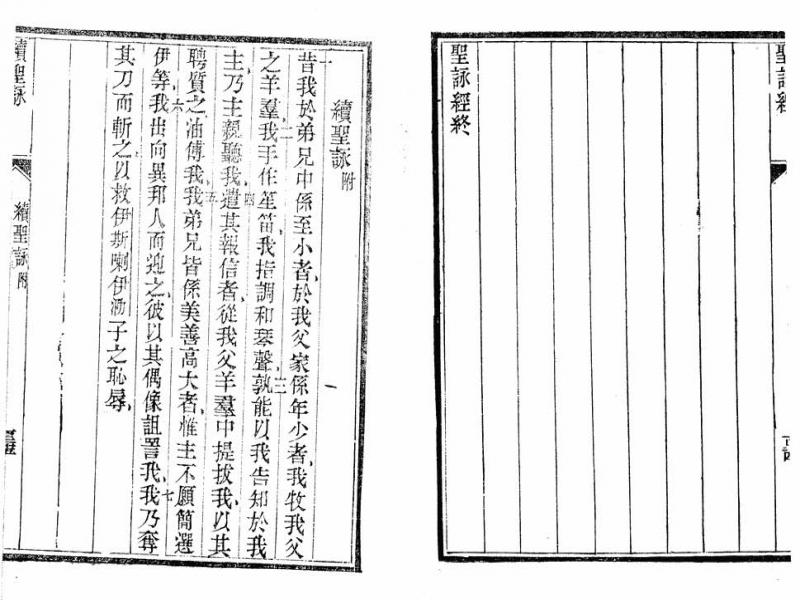 聖詠經
聖詠經終
續聖詠附
一昔我於弟兄中係至小者、於我父家係年少者、我牧我父
之羊羣、二我手作笙笛、我指調和琴聲、三孰能以我告知於我
主、乃主親聽我、四遣其報信者、從我父羊羣中提拔我、以其
聘質之油傅我、五我弟兄皆係美善高大者、惟主不願簡選
伊等、六我出向異邦人而迎之、彼以其偶像詛詈我、七我乃奪
其刀而斬之以救伊斯喇伊泐子之恥辱、
續聖詠
續聖詠附